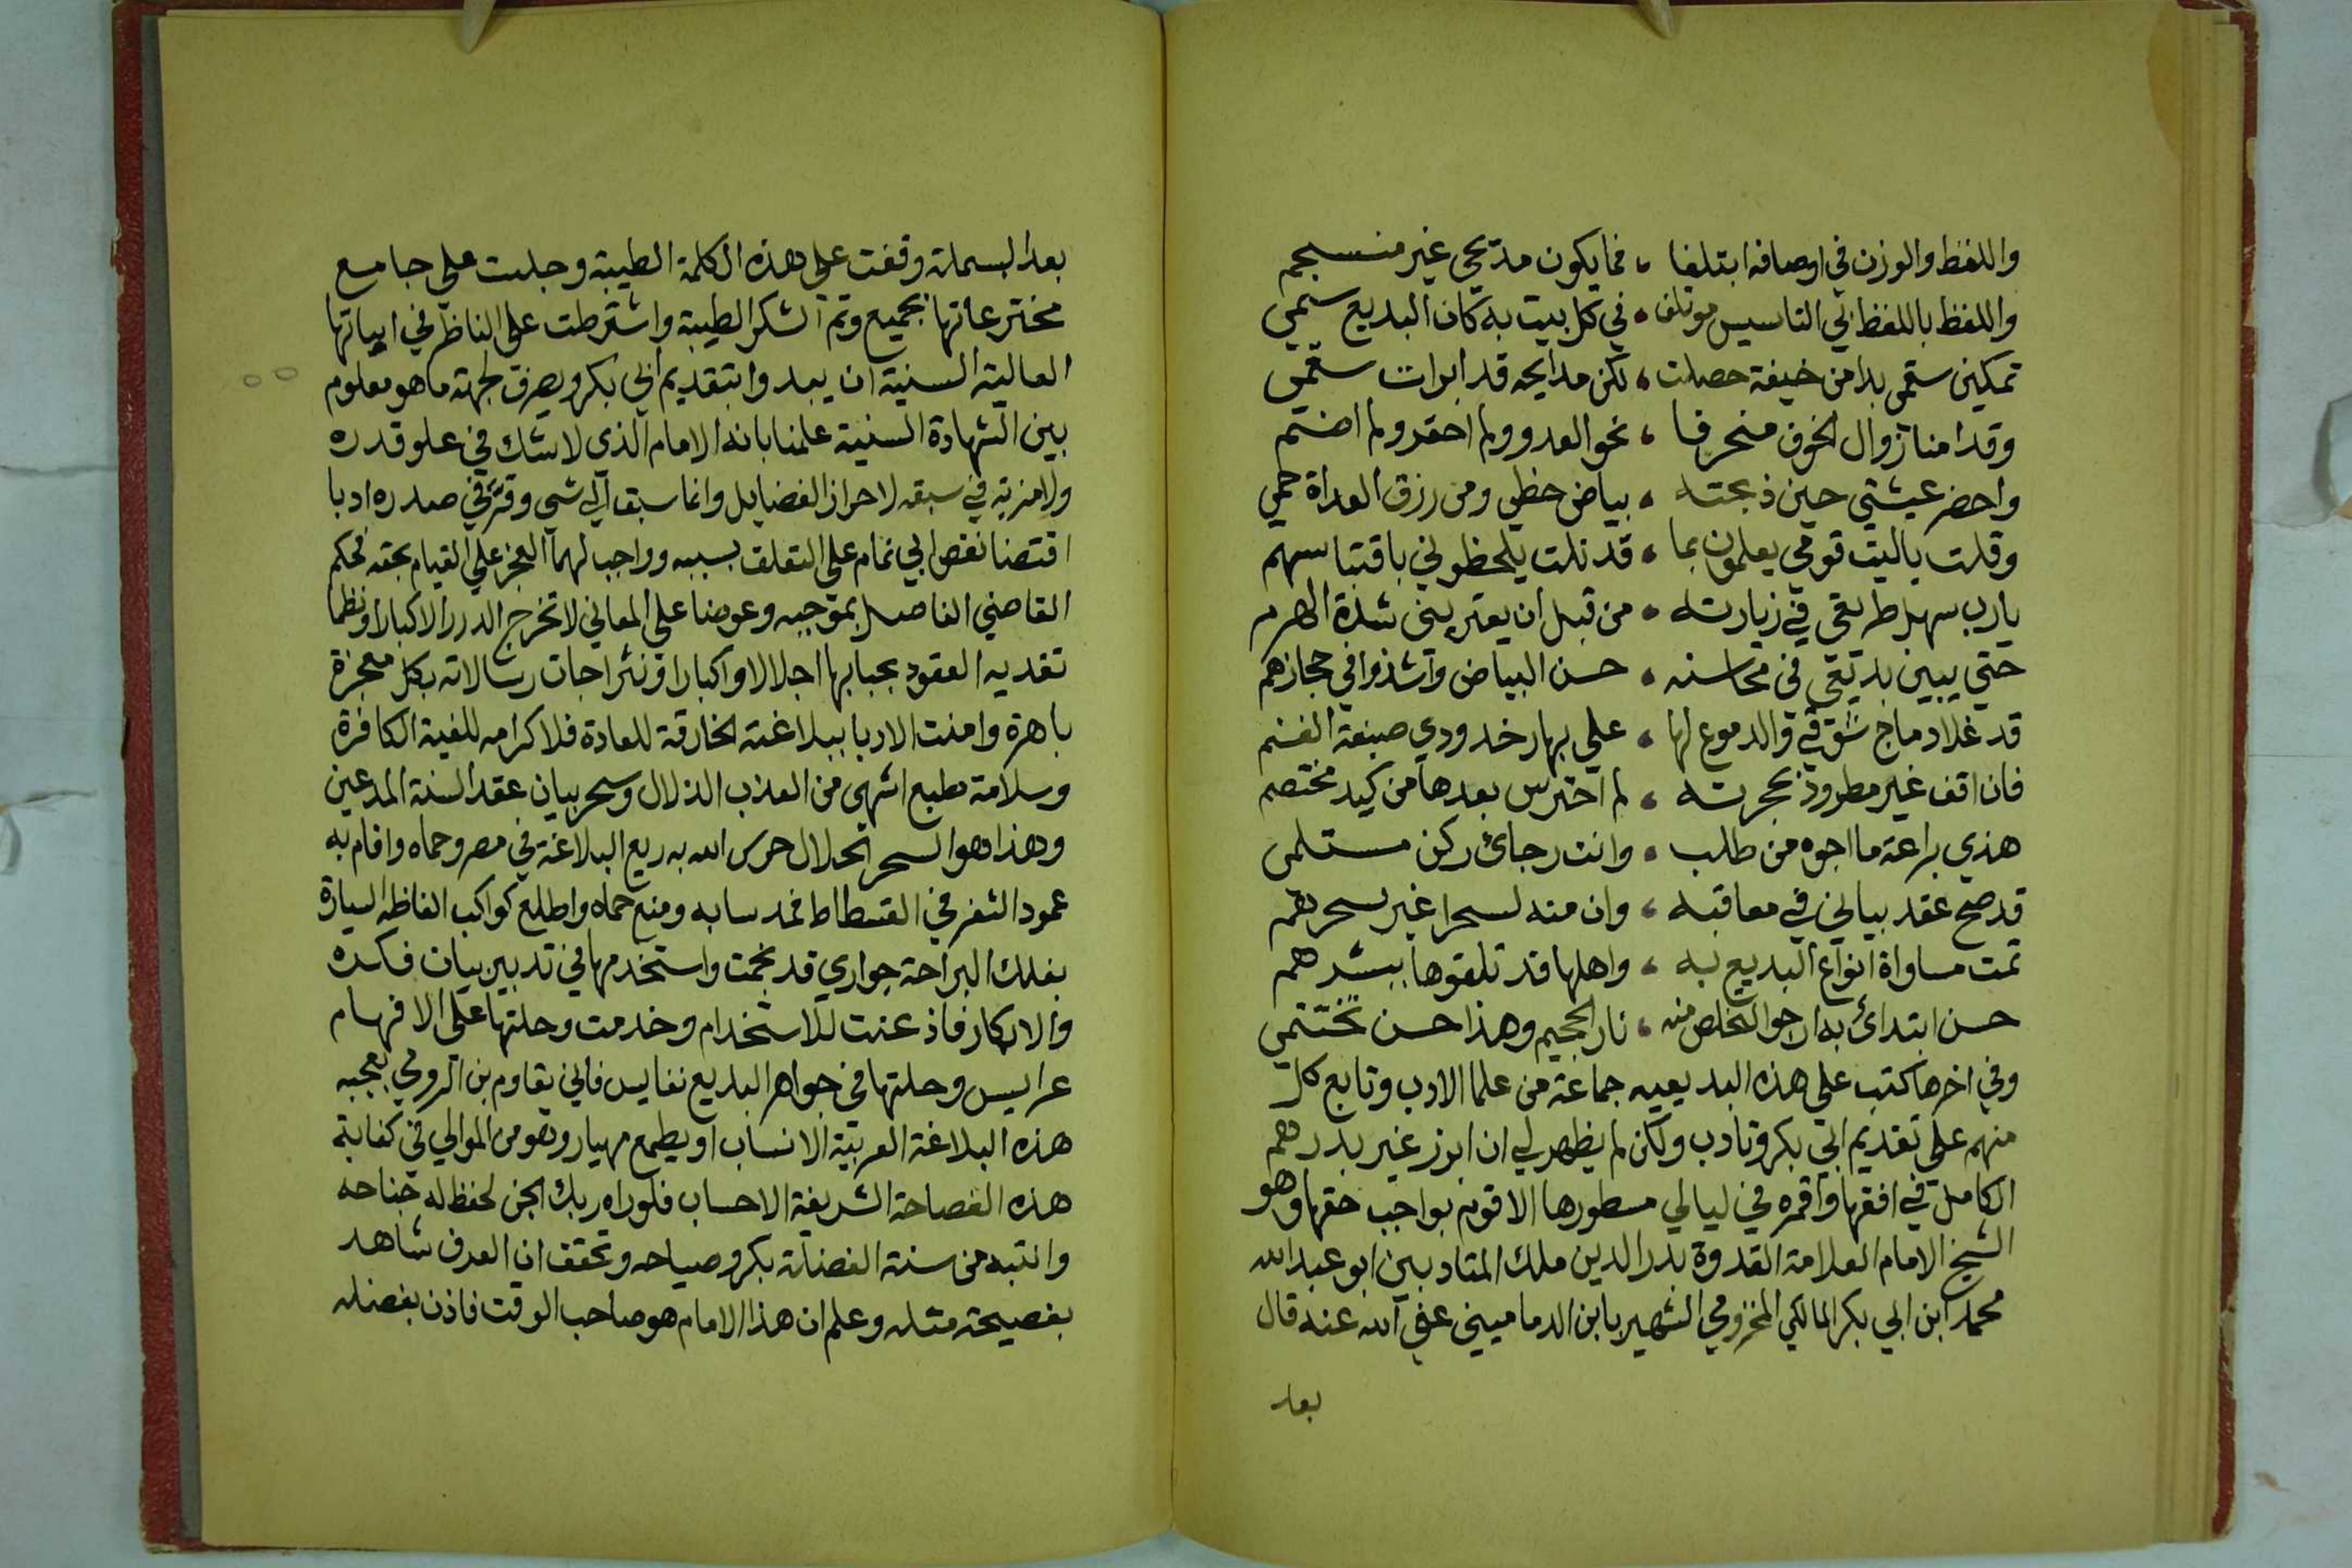 واللفظ والوزن في اوصافه ابتلفا ، فما يكون مديحي غير منسجم
واللفظ باللفظ في التاسيس موتلف ، في كل بيت به كان البديع سمي
تمكين سقمي بدا من خيفة حصلت ، لكن مدايحه قد ابرات سقمي
وقد امنا زوال الخوف منحرفا ، نحو العدو ولم احقر ولم اضم
واحضر عيشتي حين ذبحته ، بياض حظي ومن رزق العداة حمي
وقلت ياليت قومي يعلمون بما ، قد نلت يلحظوني باقتباسهم
يارب سهل طريقي في زيارته ، من قبل ان يعتريني شدة الهرم
حتي يبين بديعي في محاسنه ، حسن البياض واشذوا في حجازهم
قد غلاد ماج شوقي والدموع لها ، علي بهار خدودي صبغة الغنم
فان اقف غير مطرود بحجرته ، لم احترس بعدها من كيد مختصم
هذي براعة ما ارجوه من طلب ، وانت رجائ ركن مستلمي
قد صح عقد بياني في معاقبه ، وان منه لسحرا غير سحرهم
تمت مساواة انواع البديع به ، واهلها قد تلقوها ببشرهم
حسن ابتدائ به ارجوا التخلص منه ، نار الجحيم وهذا حسن مختتمي
وفي اخرها كتب علي هذه البديعيه جماعة من علما الادب وتابع كل
منهم علي تقديم ابي بكر وتادب ولكن لم يظهر لي ان ابرز غير بدرهم
الكامل في افقها واقمره في ليالي مسطورها الا قوم بواجب حقها وهو
الشيخ الامام العلامة القدوة بدر الدين ملك المتادبين ابو عبد الله
محمد ابن ابي بكر المالكي المخزومي الشهير بابن الدماميني عفي الله عنه قال
بعد
بعد البسملة وقفت علي هذه الكلمة الطيبة وجليت علي جامع
مخترعاتها بجميع وتم الشكر الطيبة واشترطت علي الناظر في ابياتها
العالية السنية ان يبدوا بتقديم ابي بكر ويصرف لجهته ما هو معلوم
بين الشهادة السنية علمنا بانه الامام الذي لا شك في علو قدره
ولا مزية في سبقه لاحراز الفضايل وانما سبق الي شي وقر في صدره ادبا
اقتضا نقص ابي تمام علي التعلق بسببه وواجب لهما العجز علي القيام بحقه فحكم
القاضي الفاضل بموجبه وعوضا علي المعاني لا تخرج الدرر الا كبارا ونظما
تفديه العقود بحبابها اجلالا واكبارا ونثرا جات رسالاته بكل معجزة
باهرة وامنت الادبا ببلاغته الخارقة للعادة فلا كرامه للفية الكافرة
وسلامة طبع اشهي من العذب الزلال وسحر بيان عقد السنة المدعين
وهذا هو السحر الحلال حرس الله به ربع البلاغة في مصر وحماه واقام به
عمود الشعر في الفسطاط فمد سابه ومنع حماه واطلع كواكب الفاظه السيارة
بفلك البراعة جواري قد نجمت واستخدمها في تدبير بيات فكره
والا بكار فاذعنت للاستخدام وخدمت وحلتها علي الافهام
عرايس وحلتها في جواهر البديع نفايس فاني يقاوم بن الرومي بعجبه
هذه البلاغة العربية الانساب او يطمع مهيار وهو من الموالي في كفاية
هذه الفصاحة الشريفة الاحساب فلو راه ربك الجن لحفظ له جناحه
وانتبه من سنة الفضلة بكر وصياحه وتحقق ان العرف شاهد
بفصيحة مثله وعلم ان هذا الامام هو صاحب الوقت فاذن بفضله